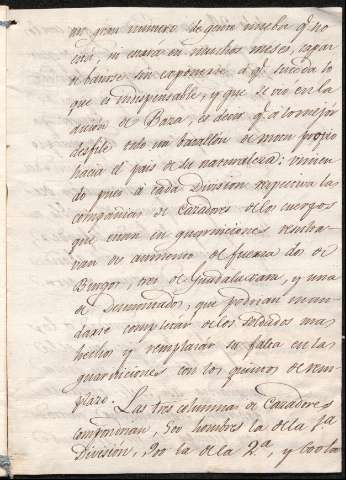 un gran numero de gente nueba qe. no
está, ni estará en muchos meses, capaz
de batirse sin esponerse á qe. suceda lo
que es indispensable, y que se vio en la
accion de Baza, es decir qe. á lo mejor
desfile todo un batallon de motu propio
hacia el pais de su naturaleza: unien
do pues á cada Division respectiva las
compañias de Cazadores de los cuerpos
que estan en guarniciones resulta
rian de aumento de fuerza dos de
Burgos, tres de Guadalaxara, y una
de Denominados, que podrian man
darse completar de los soldados mas
hechos y remplazar su falta en las
guarniciones con los quintos de rem
plazo. Las tres columnas de Cazadores
compondrian, 500 hombres la de la 1.a
Division, 900 la de la 2.a, y 600 la